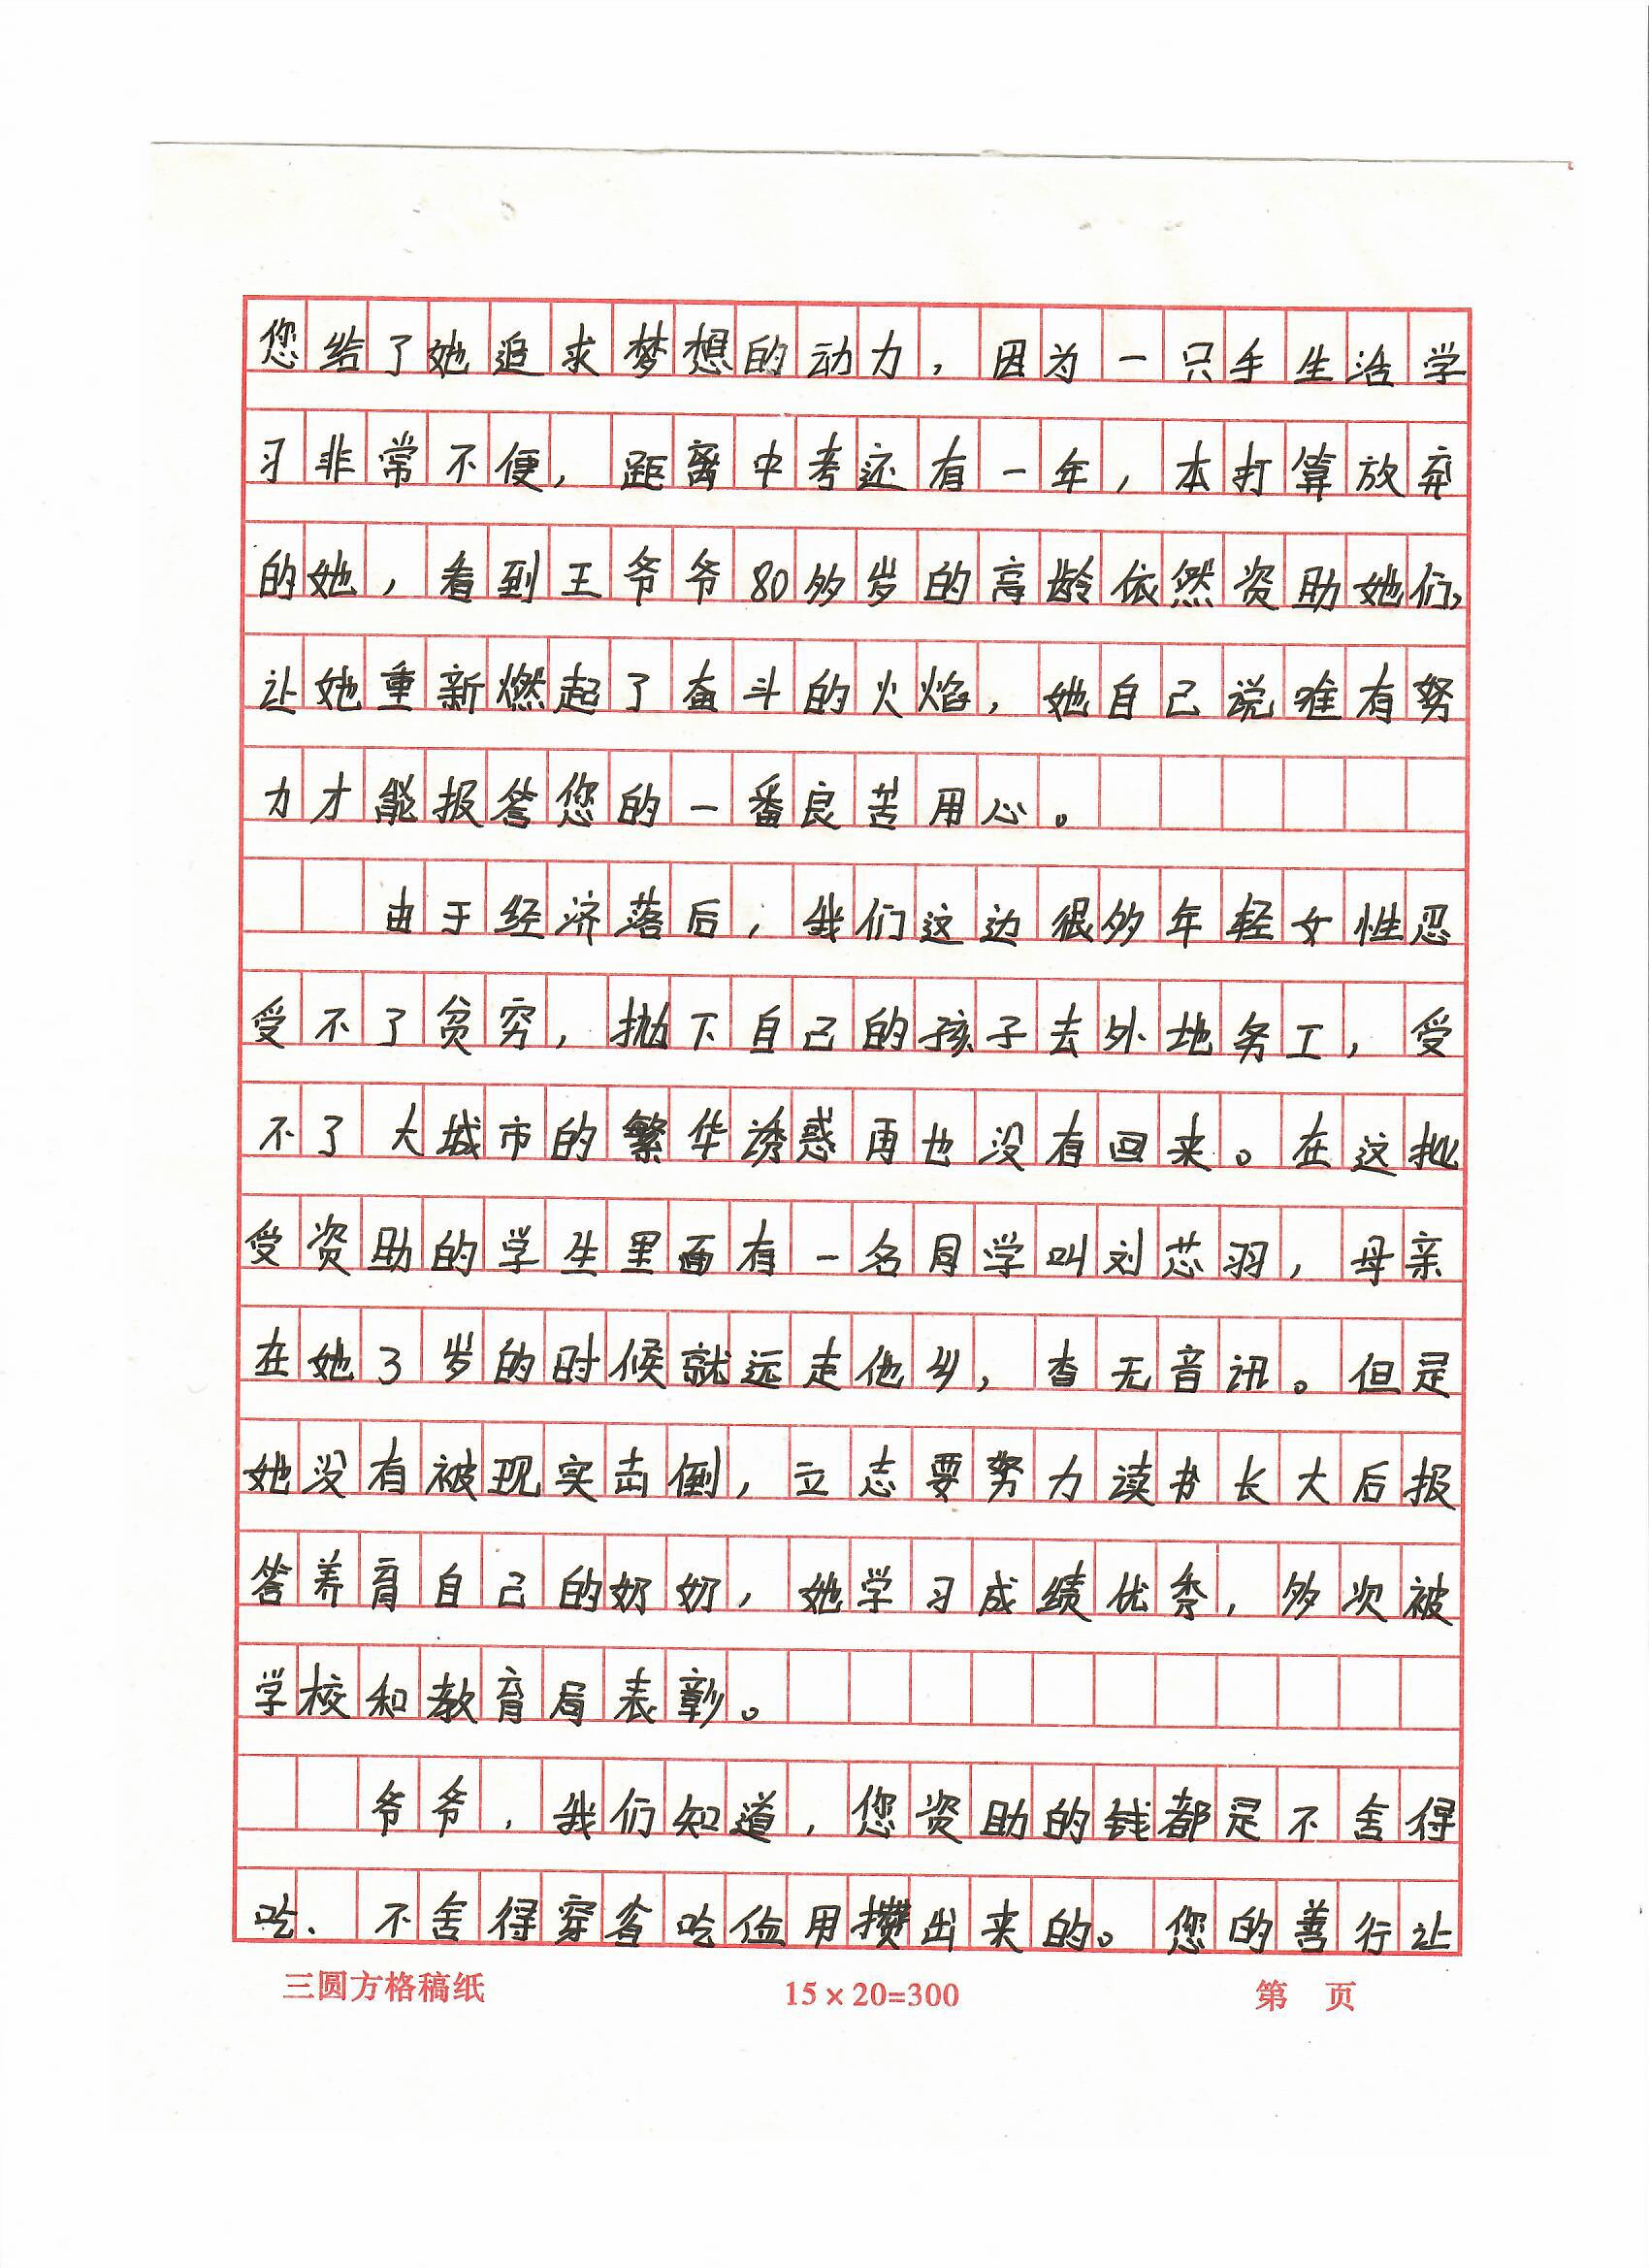 您给了她追求梦想的动力，因为一只手生活学
习非常不便，距离中考还有一年，本打算放弃
的她，看到王爷爷80多岁的高龄依然资助她们，
让她重新燃起了奋斗的火焰，她自己说唯有努
力才能报答您的一番良苦用心。
由于经济落后，我们这边很多年轻女性忍
受不了贫穷，抛下自己的孩子去外地务工，受
不了大城市的繁华诱惑再也没有回来。在这批
受资助的学生里面有一名同学叫刘芯羽，母亲
在她3岁的时候就远走他乡，杳无音讯。但是
她没有被现实击倒，立志要努力读书长大后报
答养育自己的奶奶，她学习成绩优秀，多次被
学校和教育局表彰。
爷爷，我们知道，您资助的钱都是不舍得
吃、不舍得穿省吃俭用攒出来的。您的善行让
三圆方格稿纸 15×20=300 第 页